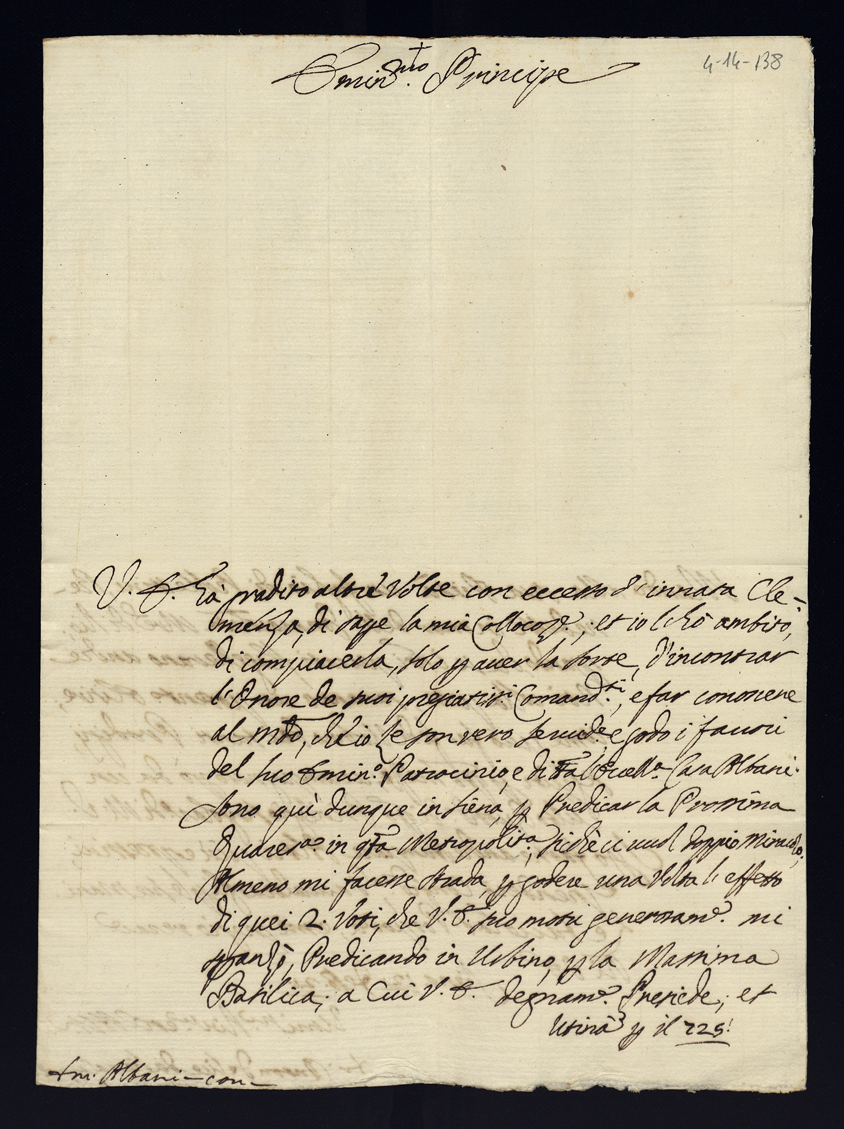 4-14-138
Emin.mo Principe
V. E. hà gradito altre Volte con eccesso d'innata Cle-
menza, di sape. la mia Collocaz.e; et io l'hò ambito,
di compiacerla, solo p. aver la sorte, d'incontrar
l'Onore de suoi pregiatis.i Comand.ti, e far conoscere
al Mdo, ch'io Le son vero Servid.e, e godo i favori
del suo Emin.o Patrocinio, e di Casa Albani.
Sono quì dunque in Siena, p. Predicar la Prossima
Quares.a in q.ta Metropolita.a, sichè ci vuol doppio Miracolo.
Almeno mi facesse strada p. godere una Volta l'effetto
di quei 2. Voti, che V. E. suo motu generosam.e mi
avanzò, Predicando in Urbino, p. la Massima
Basilica, a Cui V. E. degnam.e Presiede; et
Utinã p. il 725!
Em. Albani - con -